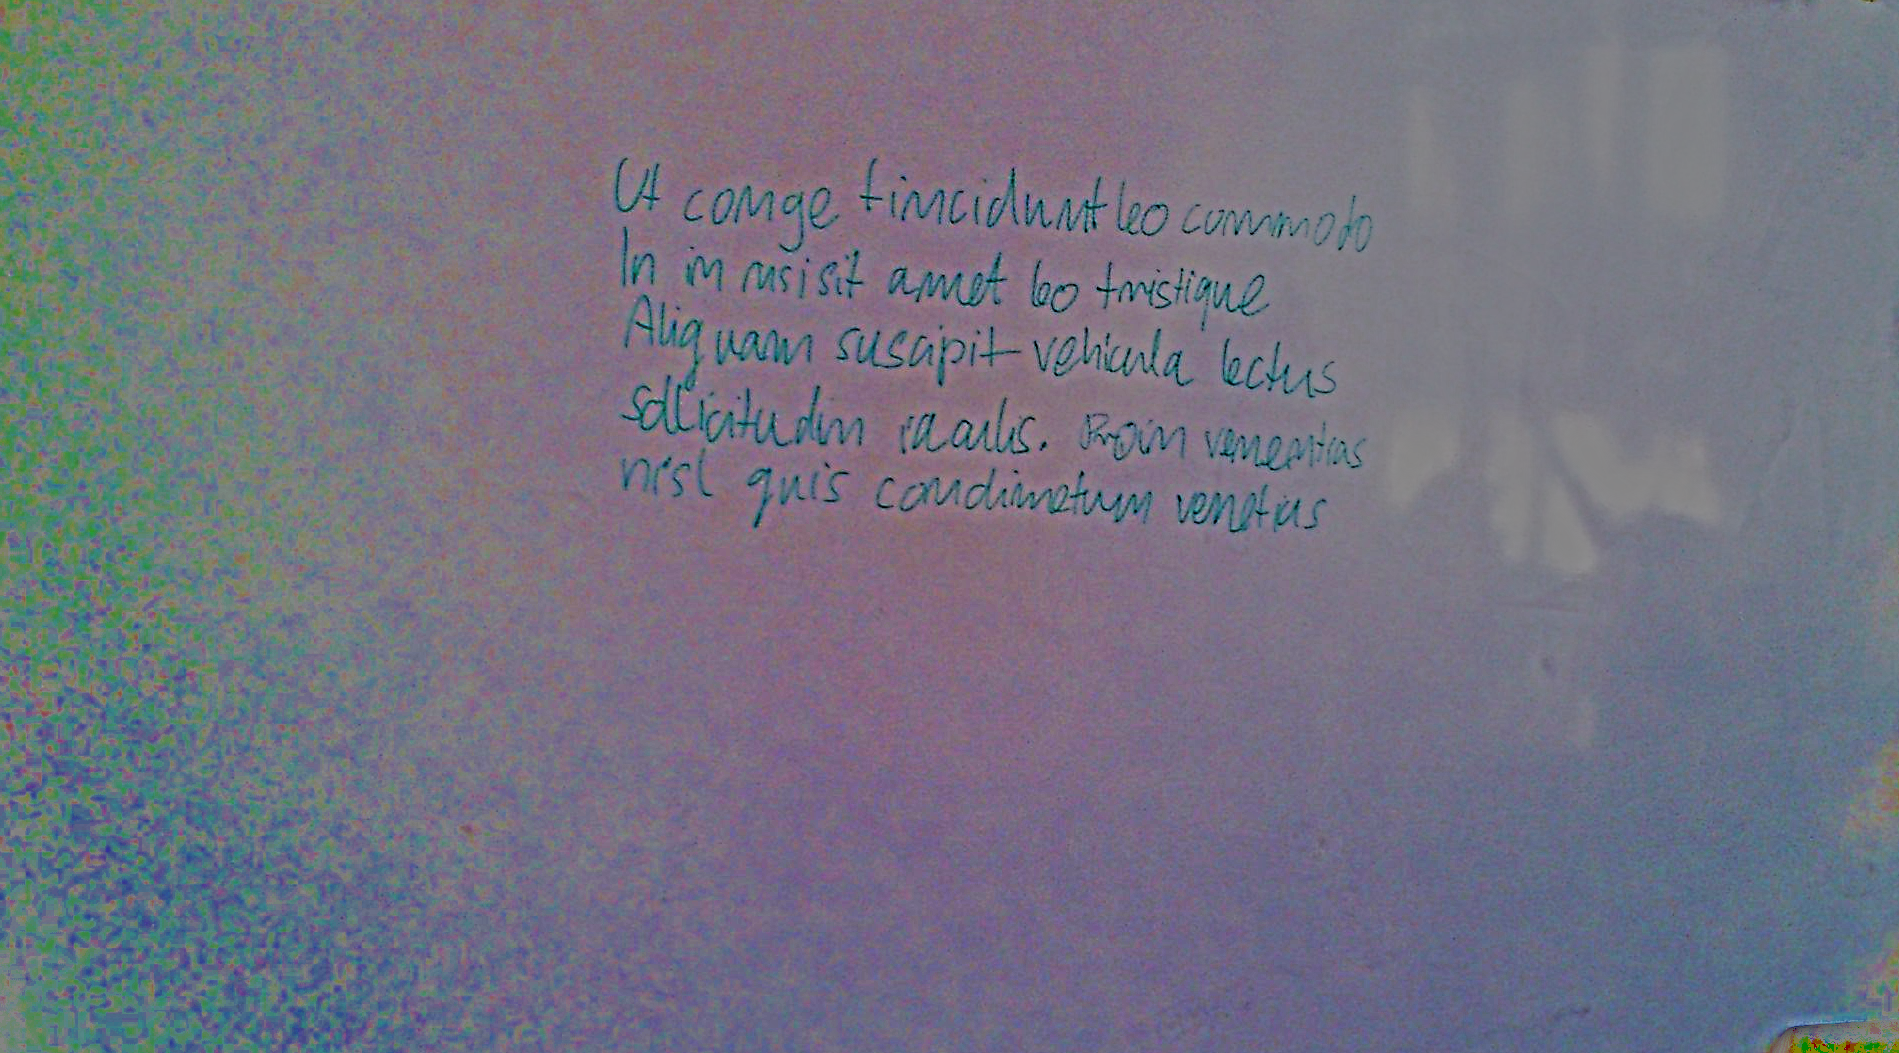 Ut conge tincidunt leo commodo
In in risi sit amet leo tristique
Aliquam suscipit vehicula lectus
sollicitudin iaculis. Proin venentias
nisl quis condimetum venetias